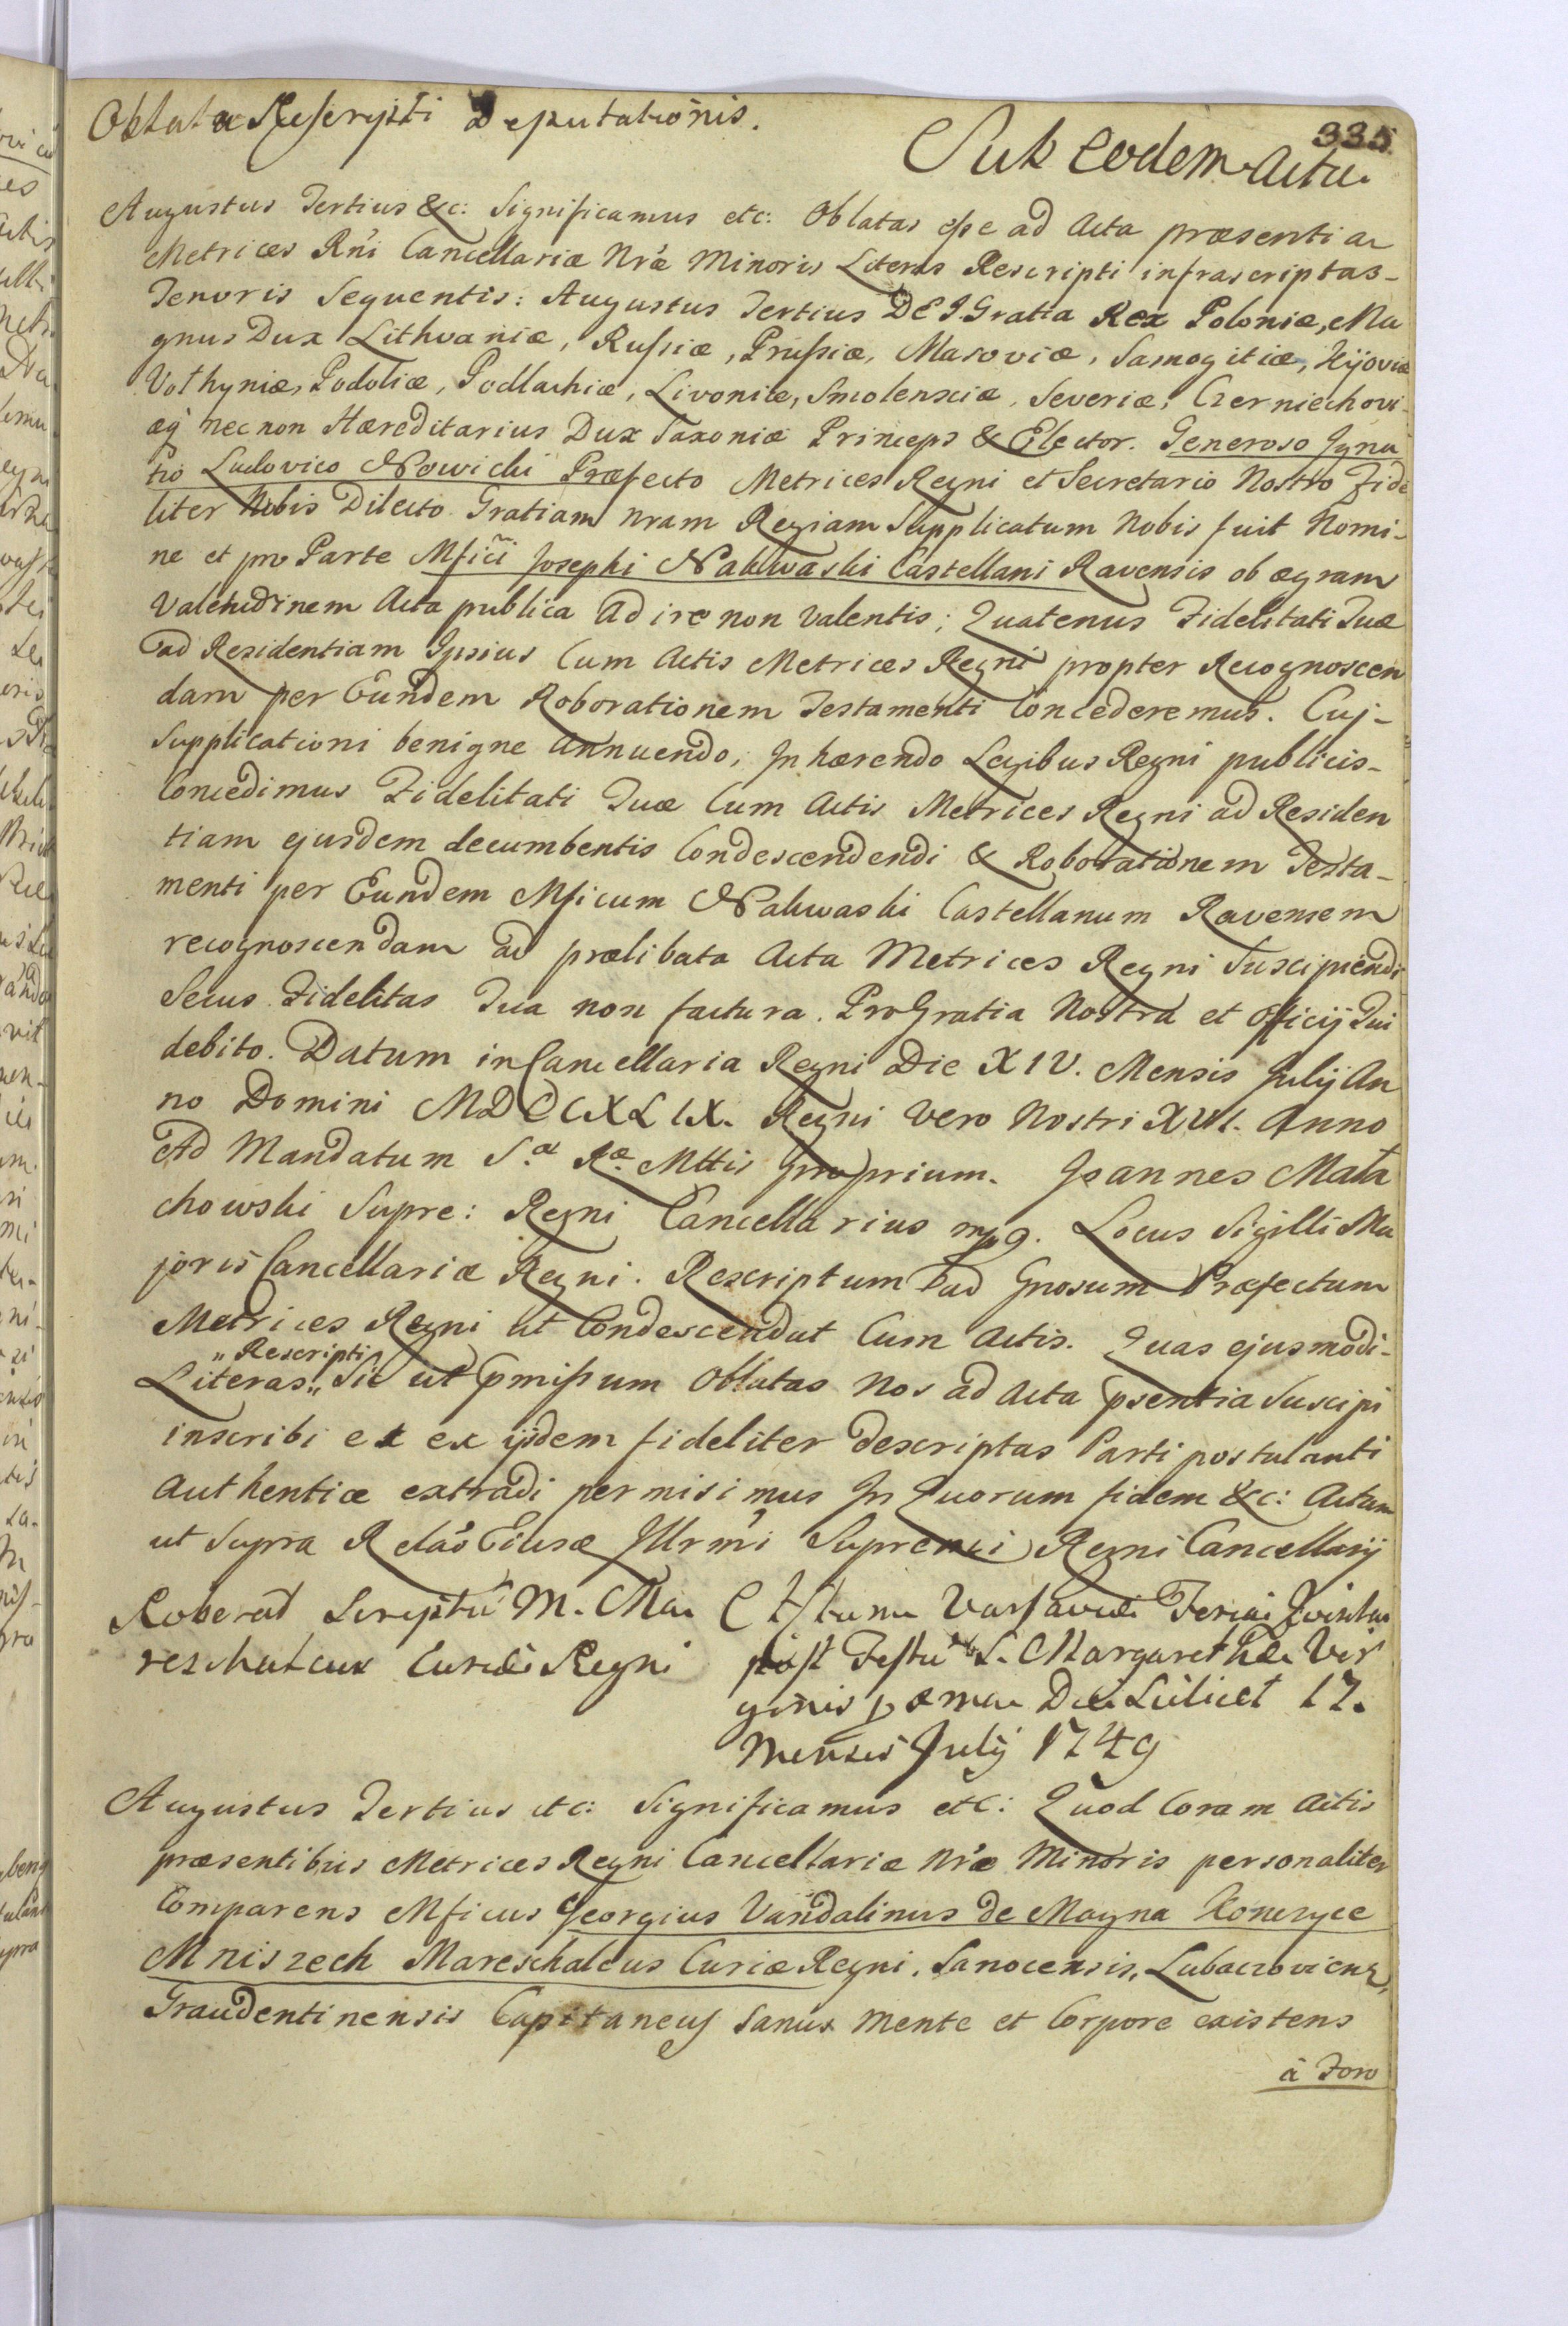 Oblata Rescripti Deputationis.
335
Sub eodem Actu.
Augustus Tertius &c: Significamus etc: Oblatas esse ad Acta præsentia
Metrices Rni Cancellariæ Nræ Minoris Literas Rescripti infrascriptas-
Tenoris Sequentis: Augustus Tertius DEI Gratia Rex Poloniæ, Ma
gnus Dux Lithvaniæ, Russiæ, Prussiæ, Masoviæ, Samogitiæ, Kijoviæ
Volhyniæ, Podoliæ, Podlachiæ, Livoniæ, Smolensciæ, Severiæ, Czerniechovi-
æq nec non Hæreditarius Dux Saxoniæ Princeps & Elector. Generoso Igna
tio Ludovico Nowicki Præfecto Metrices Regni et Secretario Nostro Fide
liter Nobis Dilecto Gratiam nram Regiam Supplicatum Nobis fuit Nomi-
ne et pro Parte Mfici Josephi Nakwaski Castellani Ravensis ob ægram
Valetudinem Acta publica Adire non Valentis; Quatenus Fidelitati Tuæ
ad Residentiam Ipsius Cum Actis Metrices Regni propter Recognoscen
dam per Eundem Roborationem Testamenti Concederemus. Cuj-
Supplicationi benigne Annuendo, Inhærendo Legibus Regni publicis-
Concedimus Fidelitati Tuæ Cum Actis Metrices Regni ad Residen
tiam ejusdem decumbentis Condescendendi & Roborationem Testa-
menti per Eundem Mficum Nakwaski Castellanum Ravensem
recognoscendam ad prælibata Acta Metrices Regni Suscipiendi
Secus Fidelitas Tua non factura. Pro Gratia Nostra et Officij Sui
debito. Datum in Cancellaria Regni Die XIV. Mensis Julij An
no Domini MDCCXLIX. Regni Vero Nostri XVI. Anno
Ad Mandatum S.æ R.æ Mttis proprium. Joannes Mała
chowski Supre: Regni Cancellarius mpp. Locus Sigilli Ma
joris Cancellariæ Regni. Rescriptum ad Gnosum Præfectum
Metrices Regni ut Condescendat Cum Actis. Quas ejusmodi-
„Rescripti„
Literas„ Sic ut pmissum Oblatas Nos ad Acta psentia Suscipi
inscribi et ex ijsdem fideliter descriptas Parti postulanti
Authentice extradi permisimus In Quorum fidem &c: Actum
ut Supra Relao Ejusd Illrmi Supremi Regni Cancellarij
Roborat Scriptu M. Ma Actum Varsaviæ Feria Quinta
reschalcus Curiæ Regni post Festu S. Margarethæ Vir
ginis Die Scilicet 17.
Mensis Julij 1749
Augustus Tertius etc: Significamus etc: Quod Coram Actis
præsentibus Metrices Regni Cancellariæ Nræ Minoris personaliter
Comparens Mficus Georgius Vandalinus de Magna Konczyce
Mniszech Mareschalcus Curiæ Regni, Sanocensis, Lubaczoviens,
Graudentinensis Capitaneus Sanus Mente et Corpore existens
à Foro